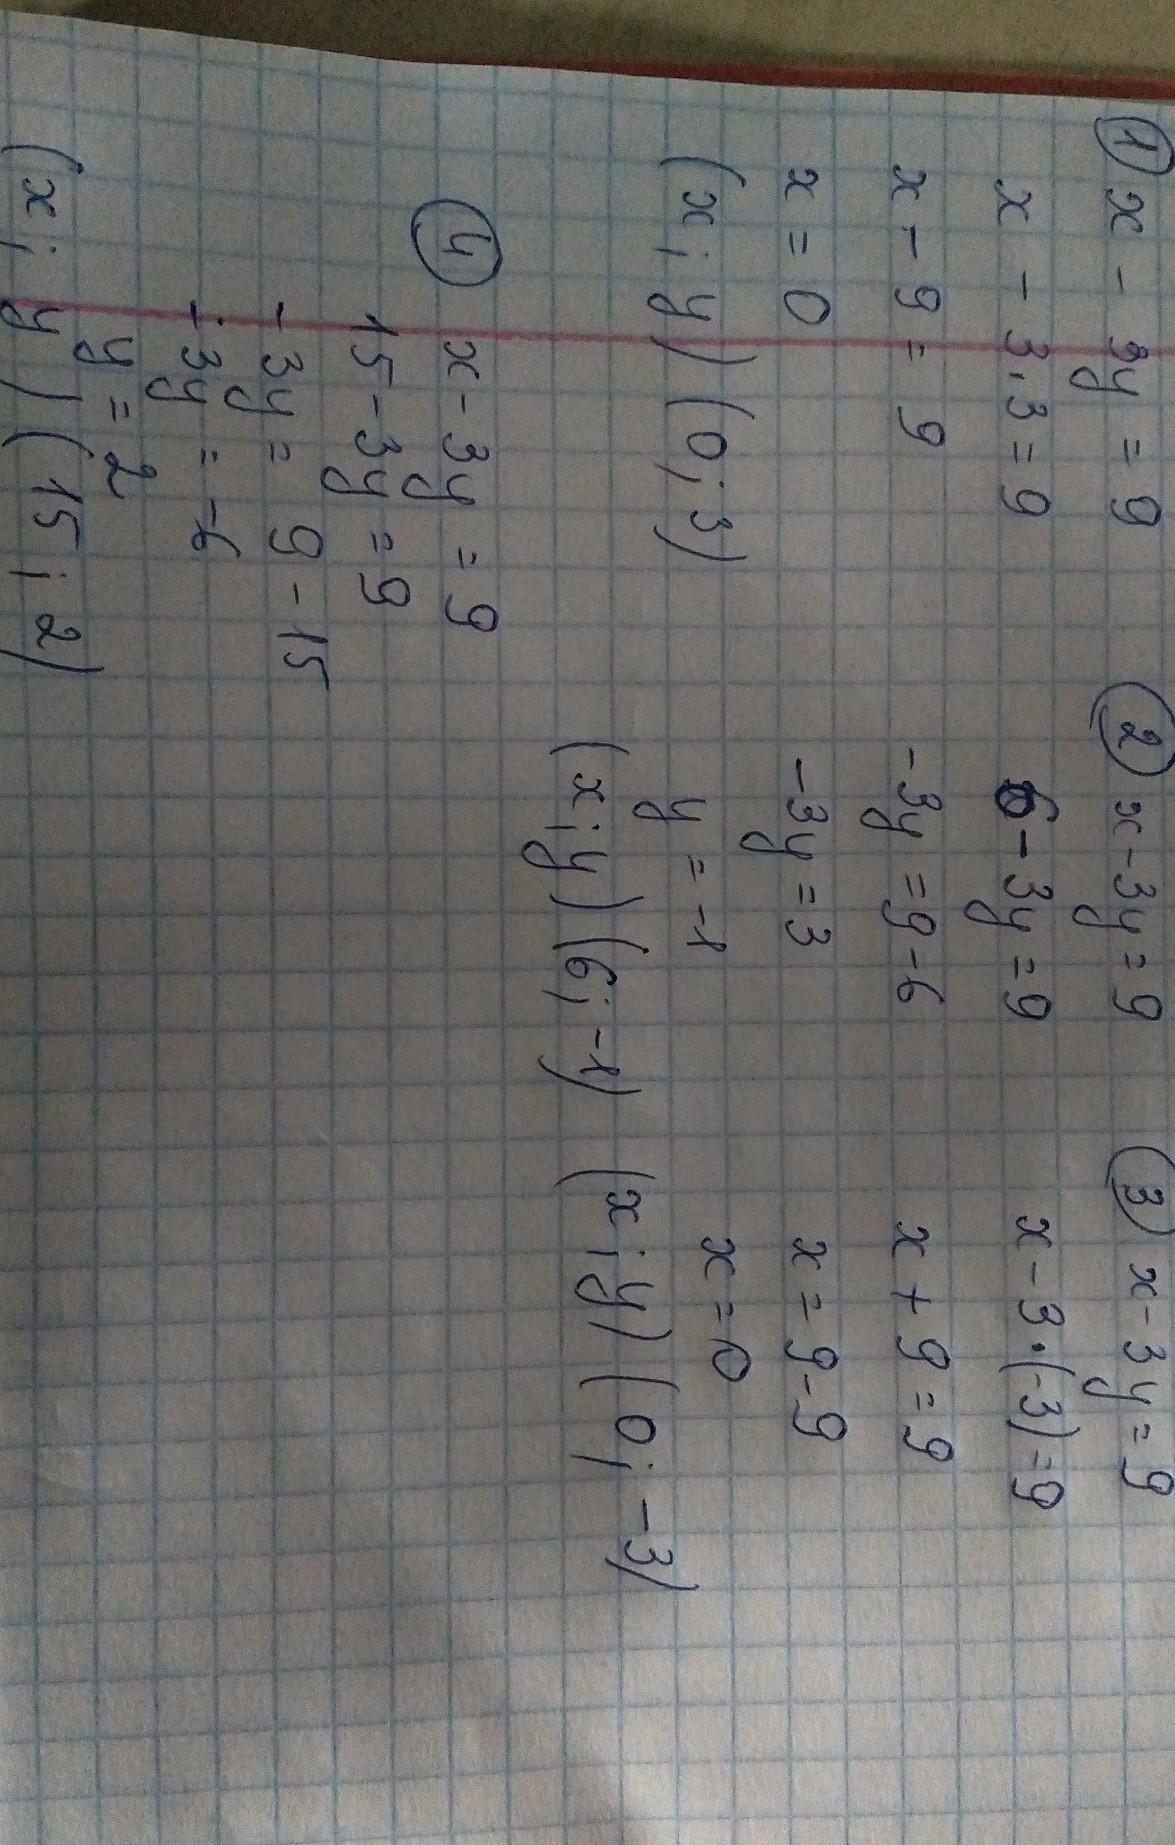 ① x - 3y = 9
x - 3·3 = 9
x - 9 = 9
x = 0
(x; y) (0; 3)
② x - 3y = 9
6 - 3y = 9
-3y = 9 - 6
-3y = 3
y = -1
(x; y) (6; -1)
③ x - 3y = 9
x - 3·(-3) = 9
x + 9 = 9
x = 9 - 9
x = 0
(x; y) (0; -3)
④ x - 3y = 9
15 - 3y = 9
-3y = 9 - 15
-3y = -6
y = 2
(x; y) (15; 2)